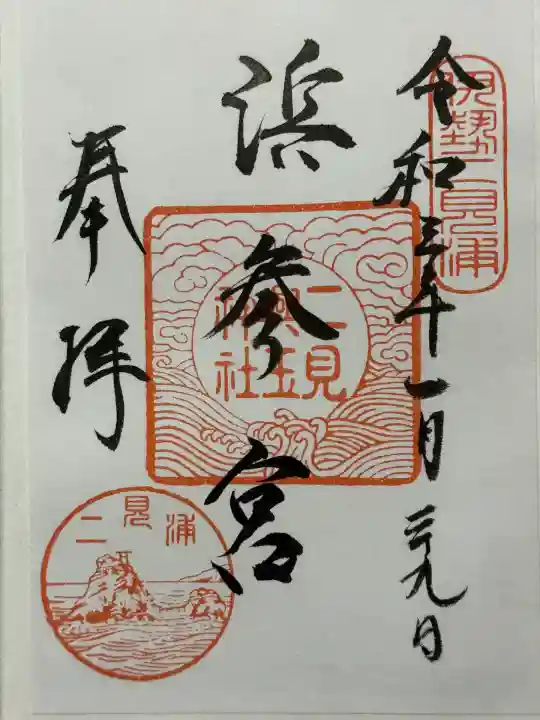 伊勢二見浦
令和三年一月二九日
浜参宮
二見
興玉
神社
奉拝
二見浦